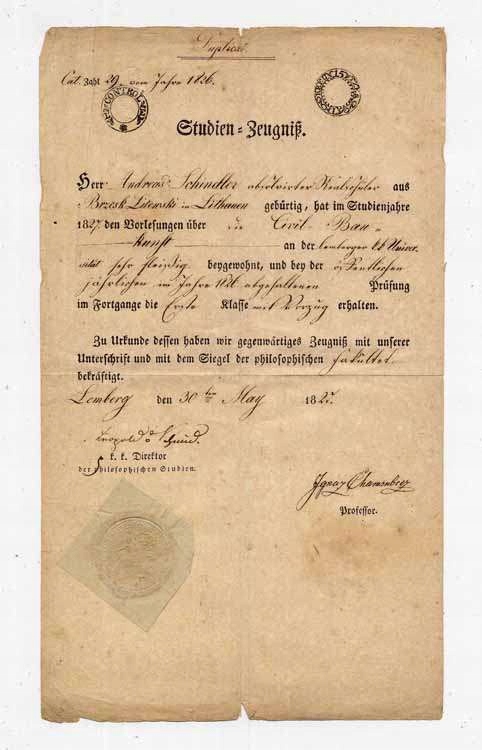 Duplicat
Cat. Zahl 29. vom Jahre 1826.
CONTROL
Studien-Zeugniß.
Herr Andreas Schindler absolvirter Realschüler aus
Brzesk Litewski in Lithauen gebürtig, hat im Studienjahre
182 den Vorlesungen über die Civil-Bau-
kunst an der Lemberger k k Univer
sität sehr fleißig beygewohnt, und bey der öffentlichen
jährlichen im Jahre 1826 abgehaltenen Prüfung
im Fortgange die Erste Klasse mit Vorzug erhalten.
Zu Urkunde dessen haben wir gegenwärtiges Zeugniß mit unserer
Unterschrift und mit dem Siegel der philosophischen Fakultet
bekräftigt.
Lemberg den 30ten May 182
Leopold
k. k. Direktor
der philosophischen Studien.
Ignaz
Professor.